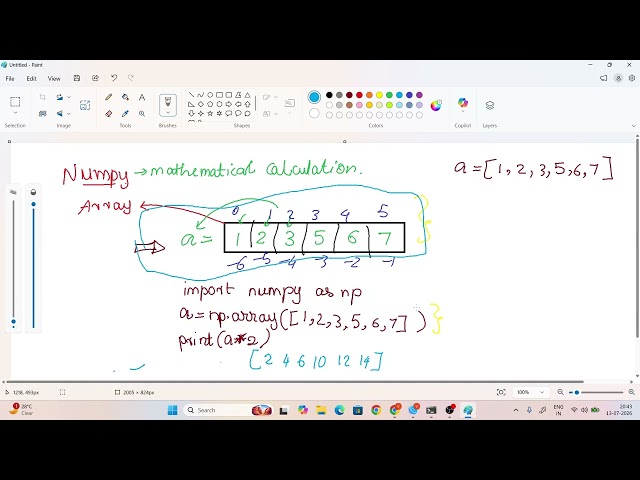 Untitled - Paint
File Edit View
Selection Image Tools Brushes Shapes Size Colors Copilot Layers
Numpy → mathematical calculation.
a = [1, 2, 3, 5, 6, 7]
Array
0 1 2 3 4 5
a = 1 2 3 5 6 7
-6 -5 -4 -3 -2 -1
import numpy as np
a = np.array([1, 2, 3, 5, 6, 7])
print(a*2)
[2 4 6 10 12 14]
1218, 493px 2005 × 824px 100%
28°C
Clear
Search
ENG
IN
20:43
13-07-2026